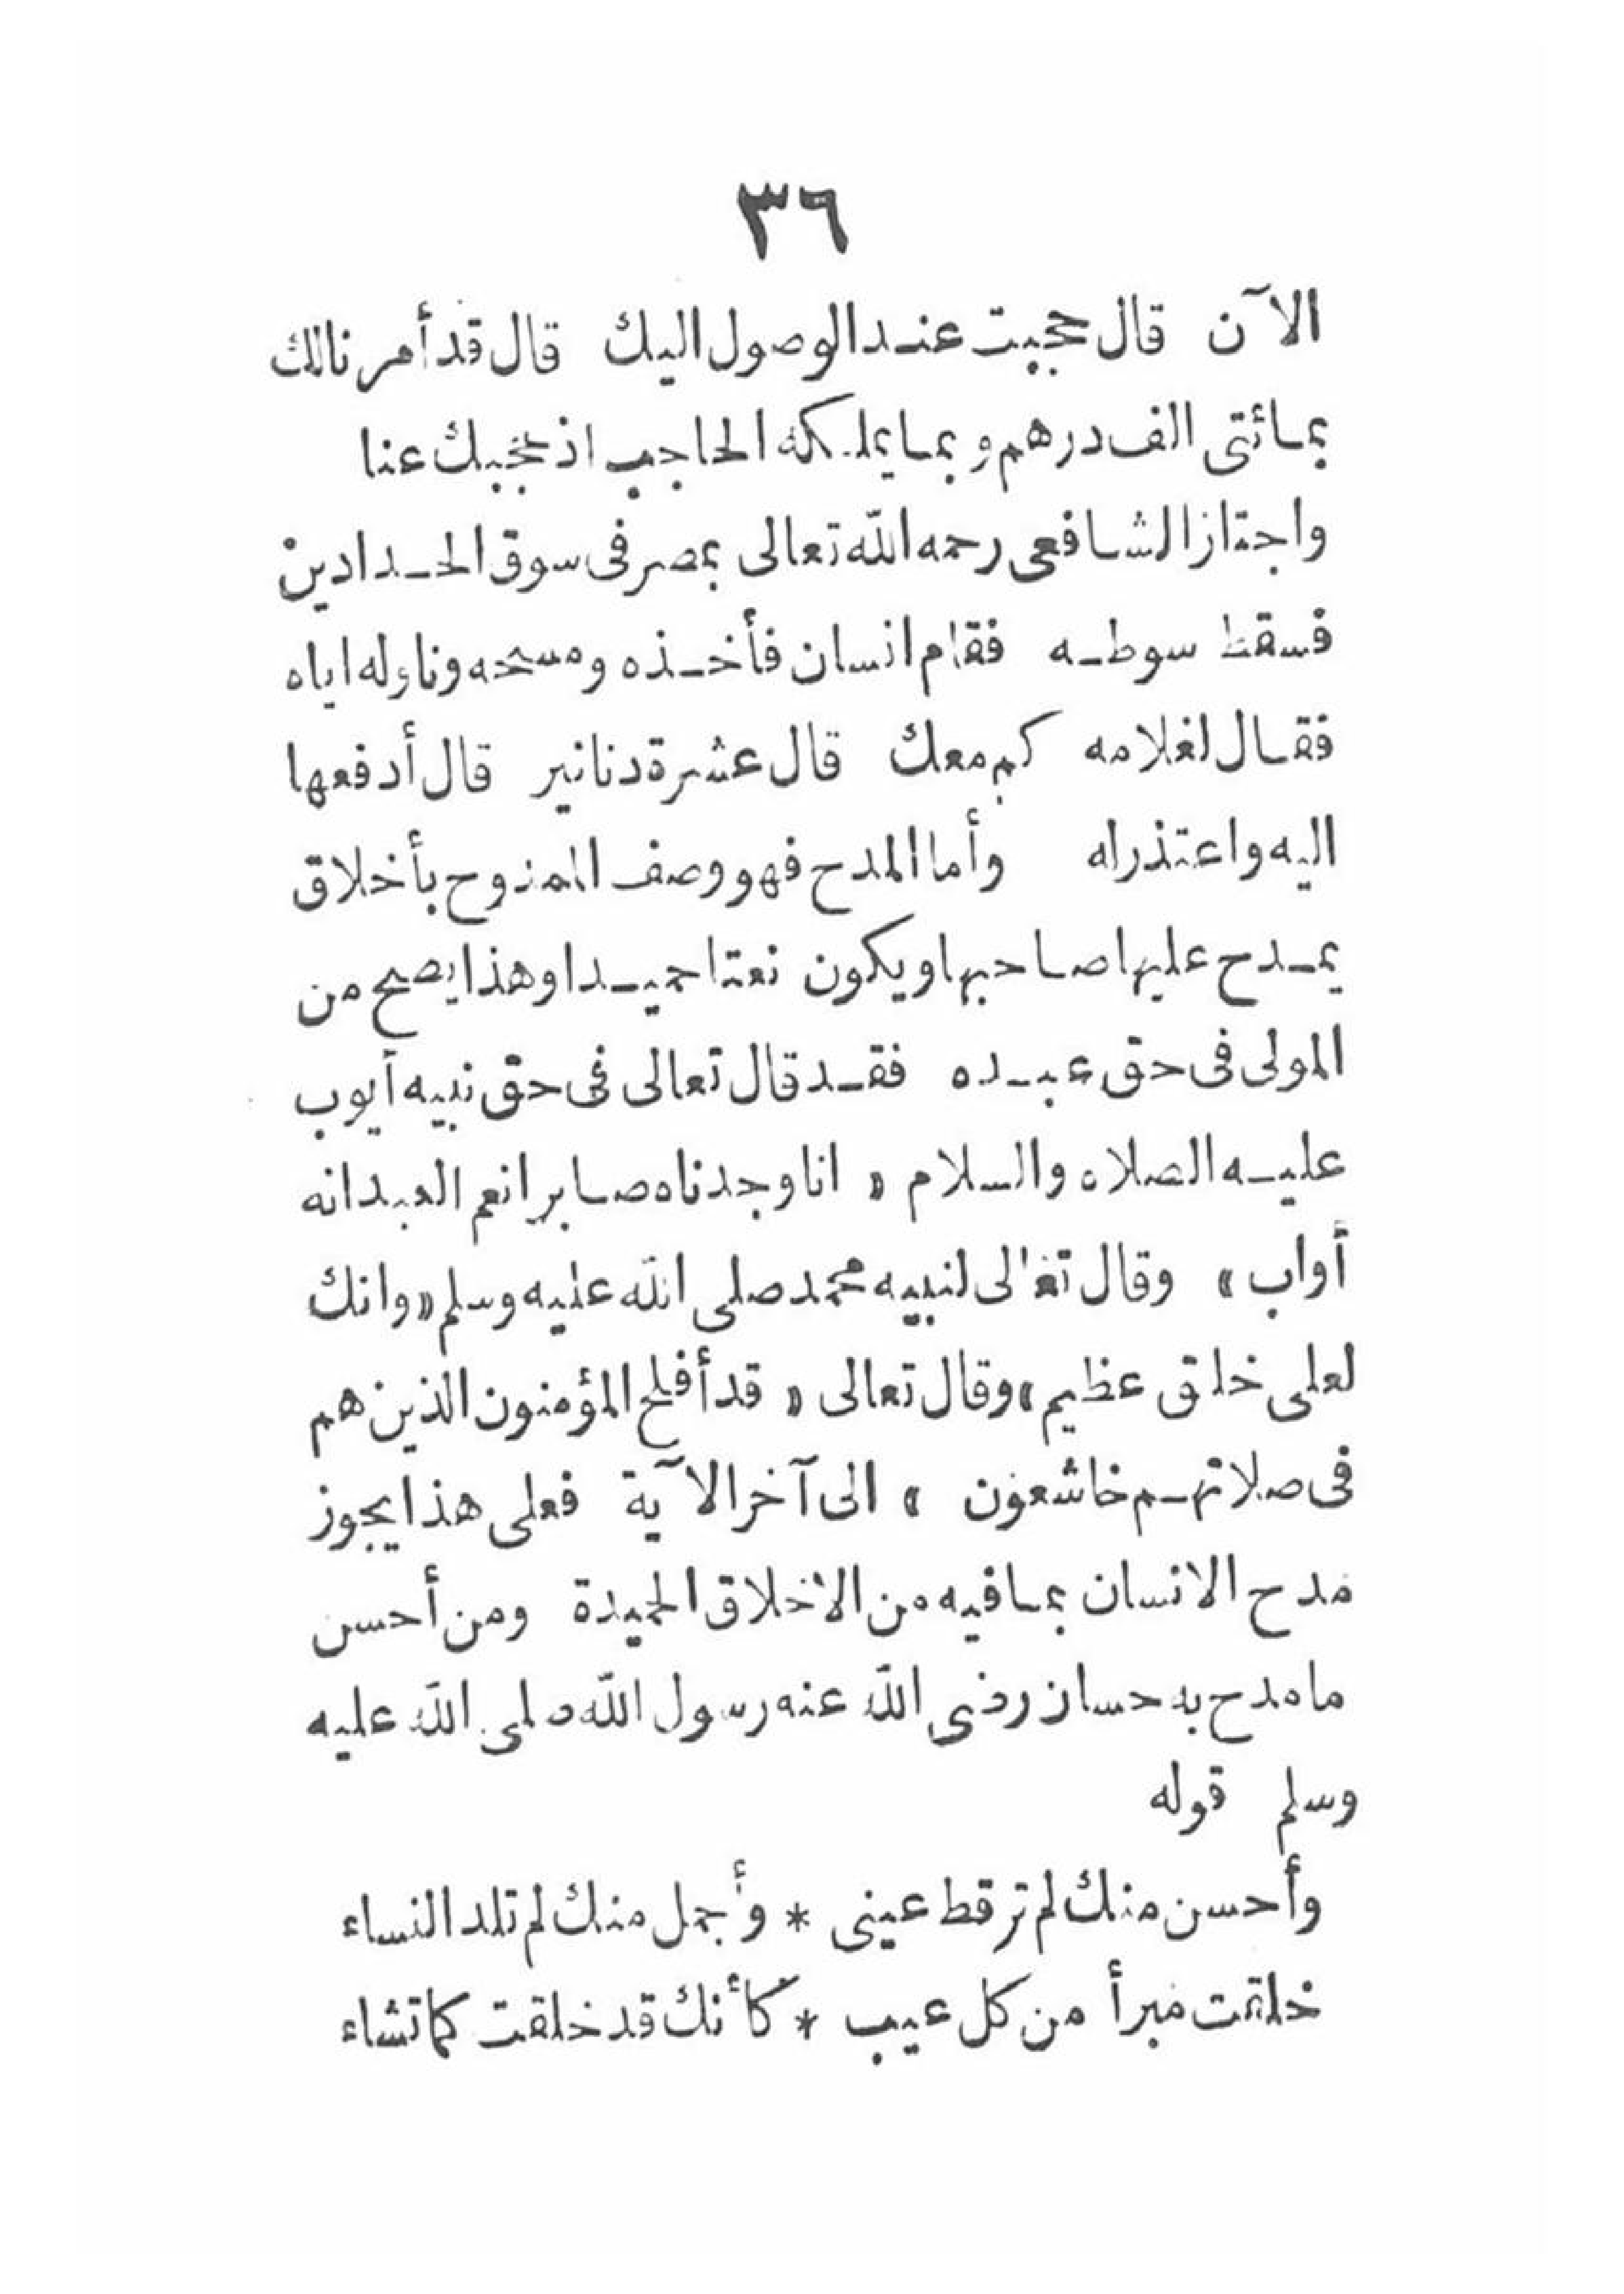 ٣٦
الآن قال حجبت عند الوصول اليك قال قد أمرنا لك
بمائتى الف درهم و بما يملكه الحاجب اذ حجبك عنا
واجتاز الشافعى رحمه الله تعالى بمصر فى سوق الحدادين
فسقط سوطه فقام انسان فأخذه ومسحه وناوله اياه
فقال لغلامه كم معك قال عشرة دنانير قال أدفعها
اليه واعتذر له وأما المدح فهو وصف الممدوح بأخلاق
يمدح عليها صاحبها ويكون نعتا حميدا وهذا يصح من
المولى فى حق عبده فقد قال تعالى فى حق نبيه أيوب
عليه الصلاه والسلام « انا وجدناه صابرا نعم العبد انه
أواب » وقال تعالى لنبيه محمد صلى الله عليه وسلم « وانك
لعلى خلق عظيم » وقال تعالى « قد أفلح المؤمنون الذين هم
فى صلاتهم خاشعون » الى آخر الآية فعلى هذا يجوز
مدح الانسان بما فيه من الاخلاق الحميدة ومن أحسن
ما مدح به حسان رضى الله عنه رسول الله صلى الله عليه
وسلم قوله
وأحسن منك لم تر قط عينى * وأجمل منك لم تلد النساء
خلقت مبرأ من كل عيب * كأنك قد خلقت كما تشاء